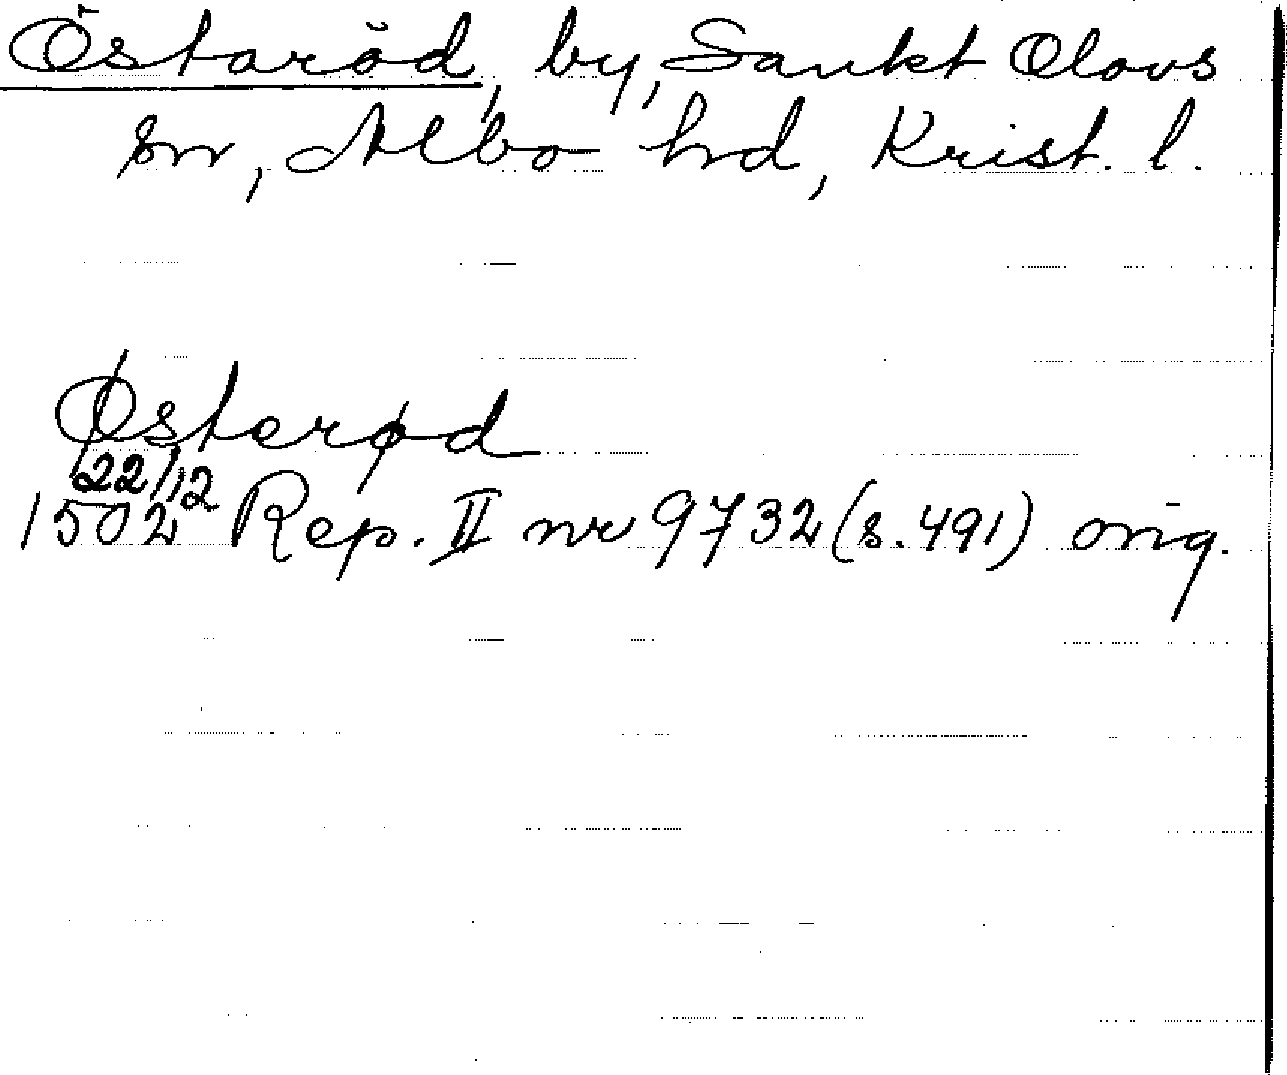 Östaröd, by, Sankt Olovs
sn, Albo hd, Krist. l.
Østerød
22/12
1502 Rep. II nr 9732 (s. 491) orig.